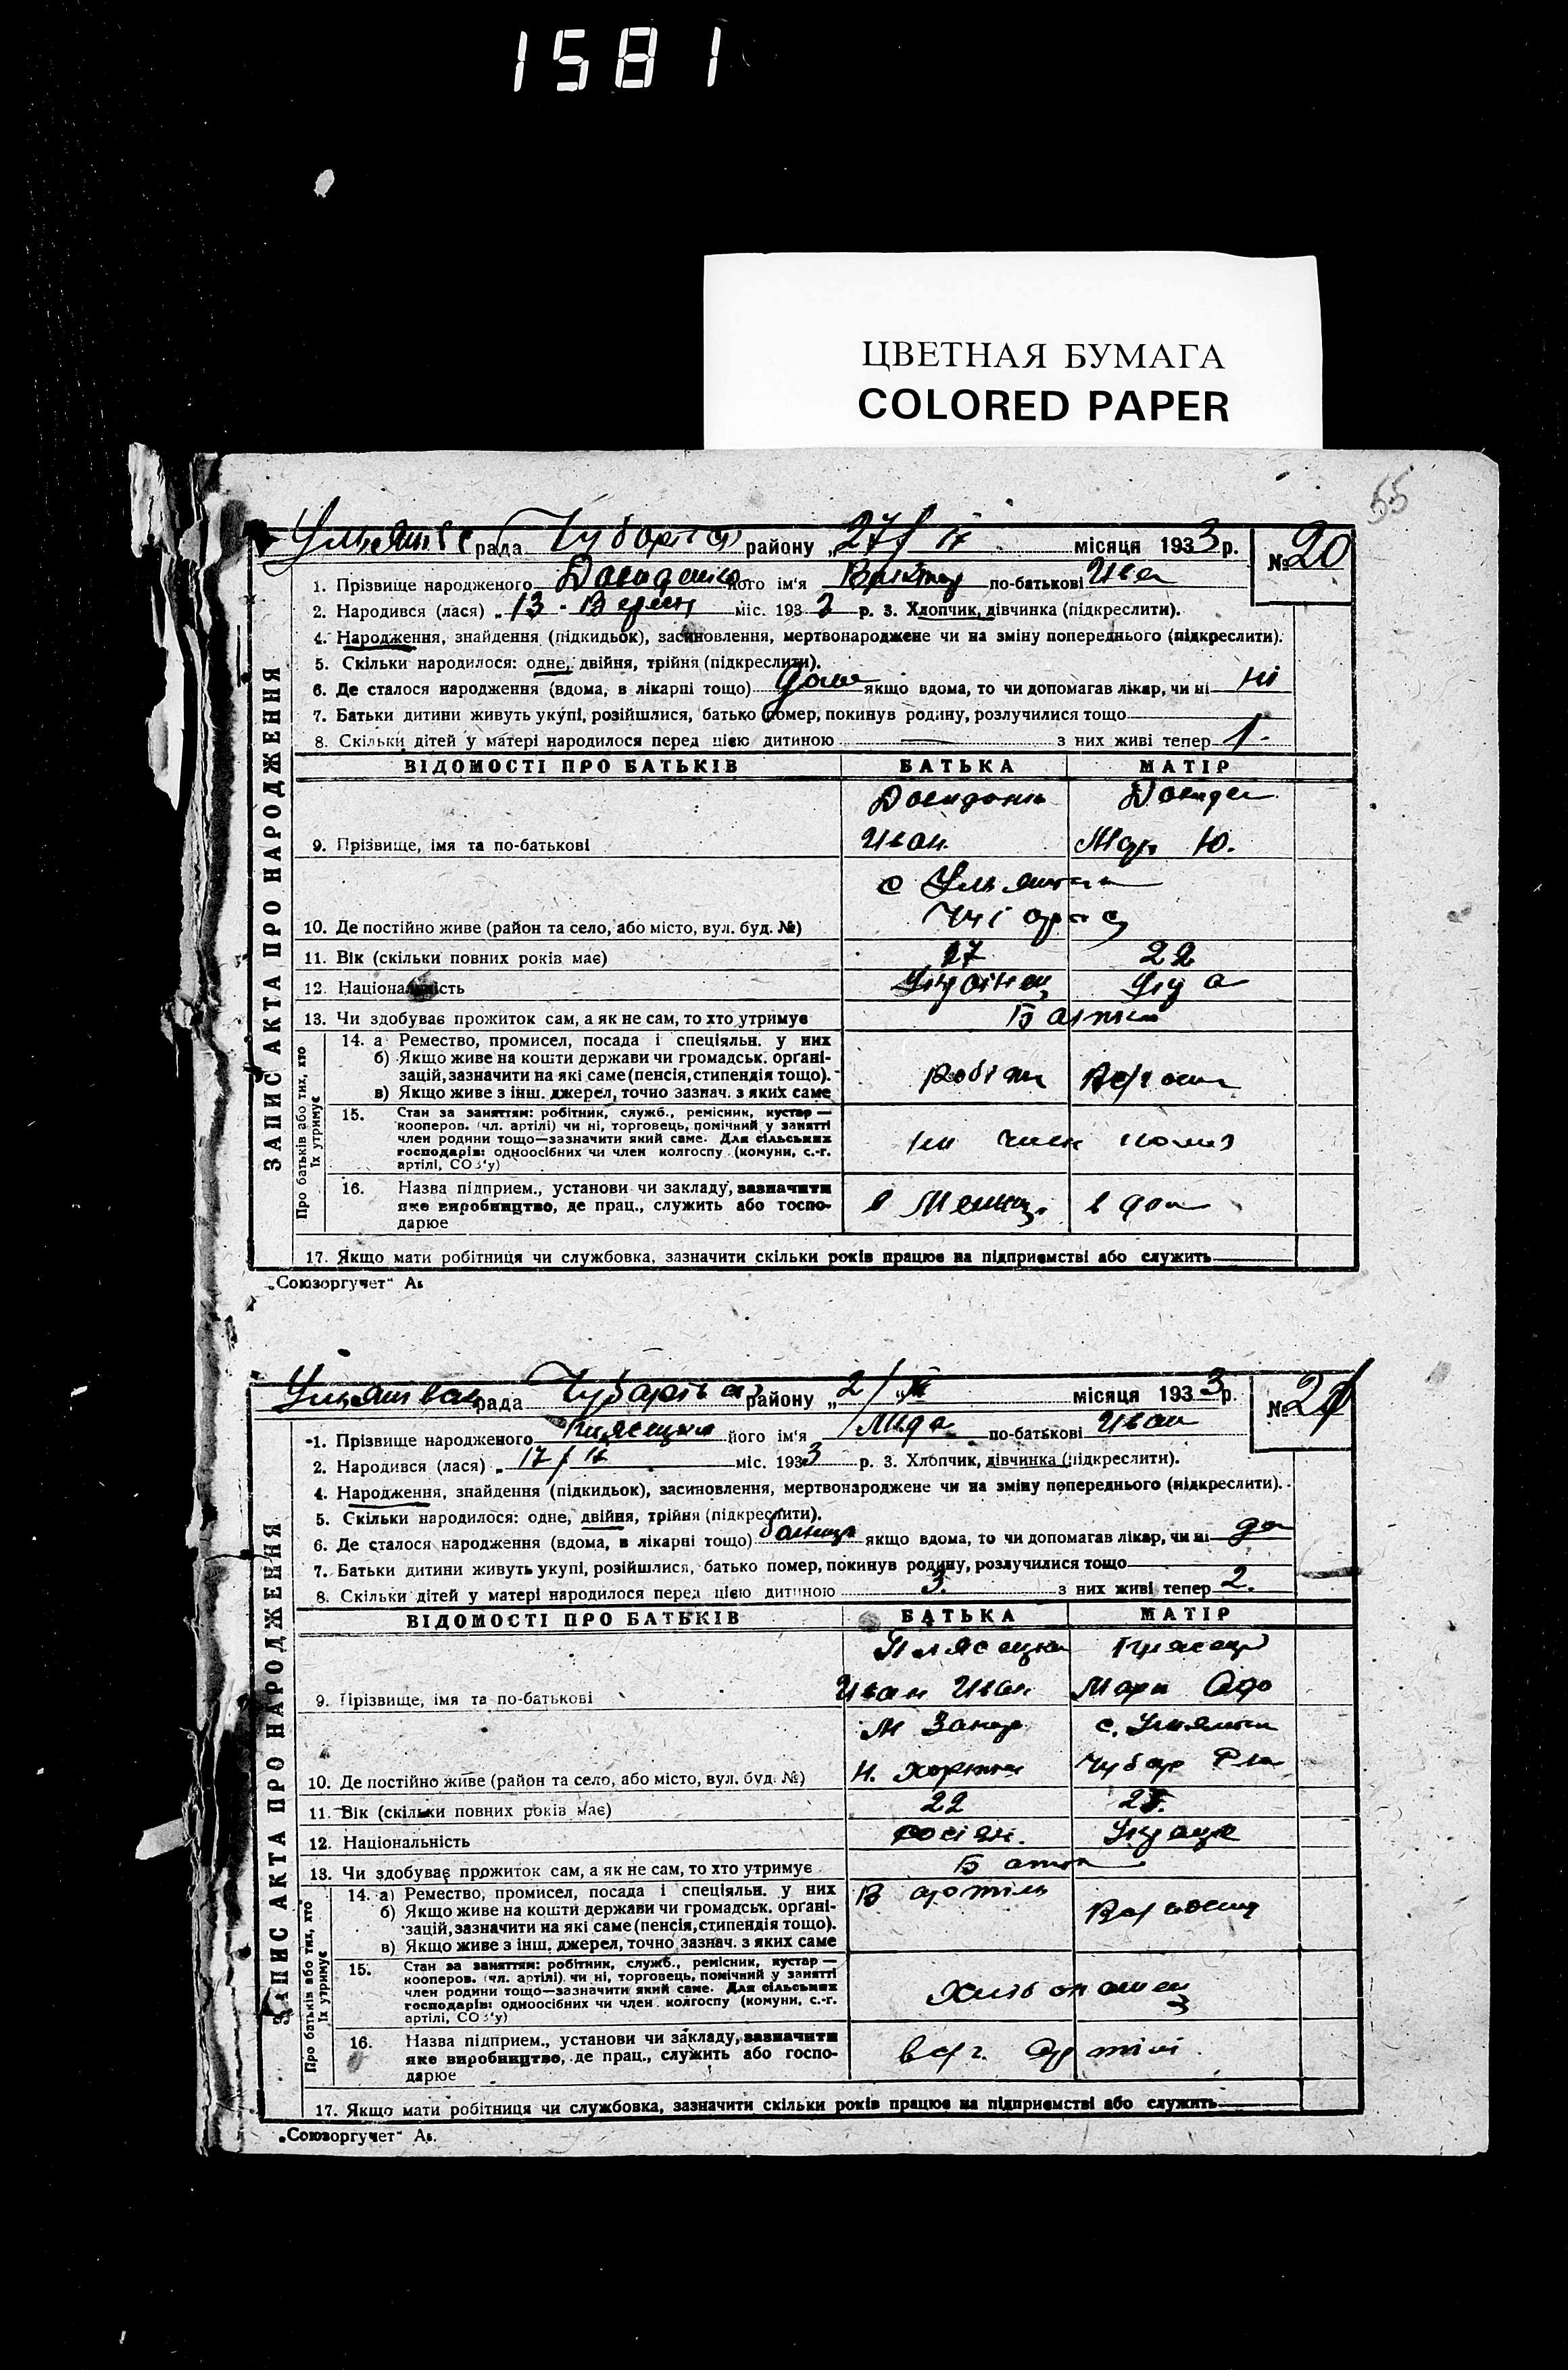 1581
ЦВЕТНАЯ БУМАГА
COLORED PAPER
55
рада Чубарів район у „27/IX місяця 1933 р. № 20
ЗАПИС АКТА ПРО НАРОДЖЕННЯ
1. Прізвище народженого Давиденко його ім'я Віктор по-батькові Ива
2. Народився (лася) „13 - Вересн міс. 1933 р. 3. Хлопчик, дівчинка (підкреслити).
4. Народження, знайдення (підкидьок), засиновлення, мертвонароджене чи на зміну попереднього (підкреслити).
5. Скільки народилося: одне, двійня, трійня (підкреслити).
6. Де сталося народження (вдома, в лікарні тощо) дома якщо вдома, то чи допомагав лікар, чи ні ні
7. Батьки дитини живуть укупі, розійшлися, батько помер, покинув родину, розлучилися тощо
8. Скільки дітей у матері народилося перед цією дитиною — з них живі тепер 1-
ВІДОМОСТІ ПРО БАТЬКІВ БАТЬКА МАТІР
9. Прізвище, імя та по-батькові Иван Мар Ю.
10. Де постійно живе (район та село, або місто, вул. буд. №)
11. Вік (скільки повних років має) 27 22
12. Національність Українец Укр
13. Чи здобуває прожиток сам, а як не сам, то хто утримує Батько
Про батьків або тих, хто їх утримує
14. а Ремество, промисел, посада і спеціяльн. у них
б) Якщо живе на кошти держави чи громадськ. орґані-
зацій, зазначити на які саме (пенсія, стипендія тощо).
в) Якщо живе з інш. джерел, точно зазнач. з яких саме
15. Стан за заняттям: робітник, служб., ремісник, кустар —
кооперов. (чл. артілі) чи ні, торговець, помічний у занятті
член родини тощо—зазначити який саме. Для сільських
господарів: одноосібних чи член колгоспу (комуни, с.-г.
артілі, СОЗ'у)
16. Назва підприєм., установи чи закладу, зазначити
яке виробництво, де прац., служить або госпо-
дарює
17. Якщо мати робітниця чи службовка, зазначити скільки років працює на підприємстві або служить
„Союзоргучет“ А.
рада Чубарів район у „2/ місяця 1933 р. № 21
ЗАПИС АКТА ПРО НАРОДЖЕННЯ
1. Прізвище народженого його ім'я Лида по-батькові Иван
2. Народився (лася) „17/IX міс. 1933 р. 3. Хлопчик, дівчинка (підкреслити).
4. Народження, знайдення (підкидьок), засиновлення, мертвонароджене чи на зміну попереднього (підкреслити).
5. Скільки народилося: одне, двійня, трійня (підкреслити).
6. Де сталося народження (вдома, в лікарні тощо) якщо вдома, то чи допомагав лікар, чи ні да
7. Батьки дитини живуть укупі, розійшлися, батько помер, покинув родину, розлучилися тощо
8. Скільки дітей у матері народилося перед цією дитиною 3. з них живі тепер 2.
ВІДОМОСТІ ПРО БАТЬКІВ БАТЬКА МАТІР
9. Прізвище, імя та по-батькові Иван Иван Мари
10. Де постійно живе (район та село, або місто, вул. буд. №) Чубар
11. Вік (скільки повних років має) 22
12. Національність росіян.
13. Чи здобуває прожиток сам, а як не сам, то хто утримує
Про батьків або тих, хто їх утримує
14. а) Ремество, промисел, посада і спеціяльн. у них В артіль
б) Якщо живе на кошти держави чи громадськ. орґані-
зацій, зазначити на які саме (пенсія, стипендія тощо).
в) Якщо живе з інш. джерел, точно зазнач. з яких саме
15. Стан за заняттям: робітник, служб., ремісник, кустар —
кооперов. (чл. артілі) чи ні, торговець, помічний у занятті
член родини тощо—зазначити який саме. Для сільських
господарів: одноосібних чи член колгоспу (комуни, с.-г.
артілі, СОЗ'у)
16. Назва підприєм., установи чи закладу, зазначити
яке виробництво, де прац., служить або госпо-
дарює
17. Якщо мати робітниця чи службовка, зазначити скільки років працює на підприємстві або служить
„Союзоргучет“ А.